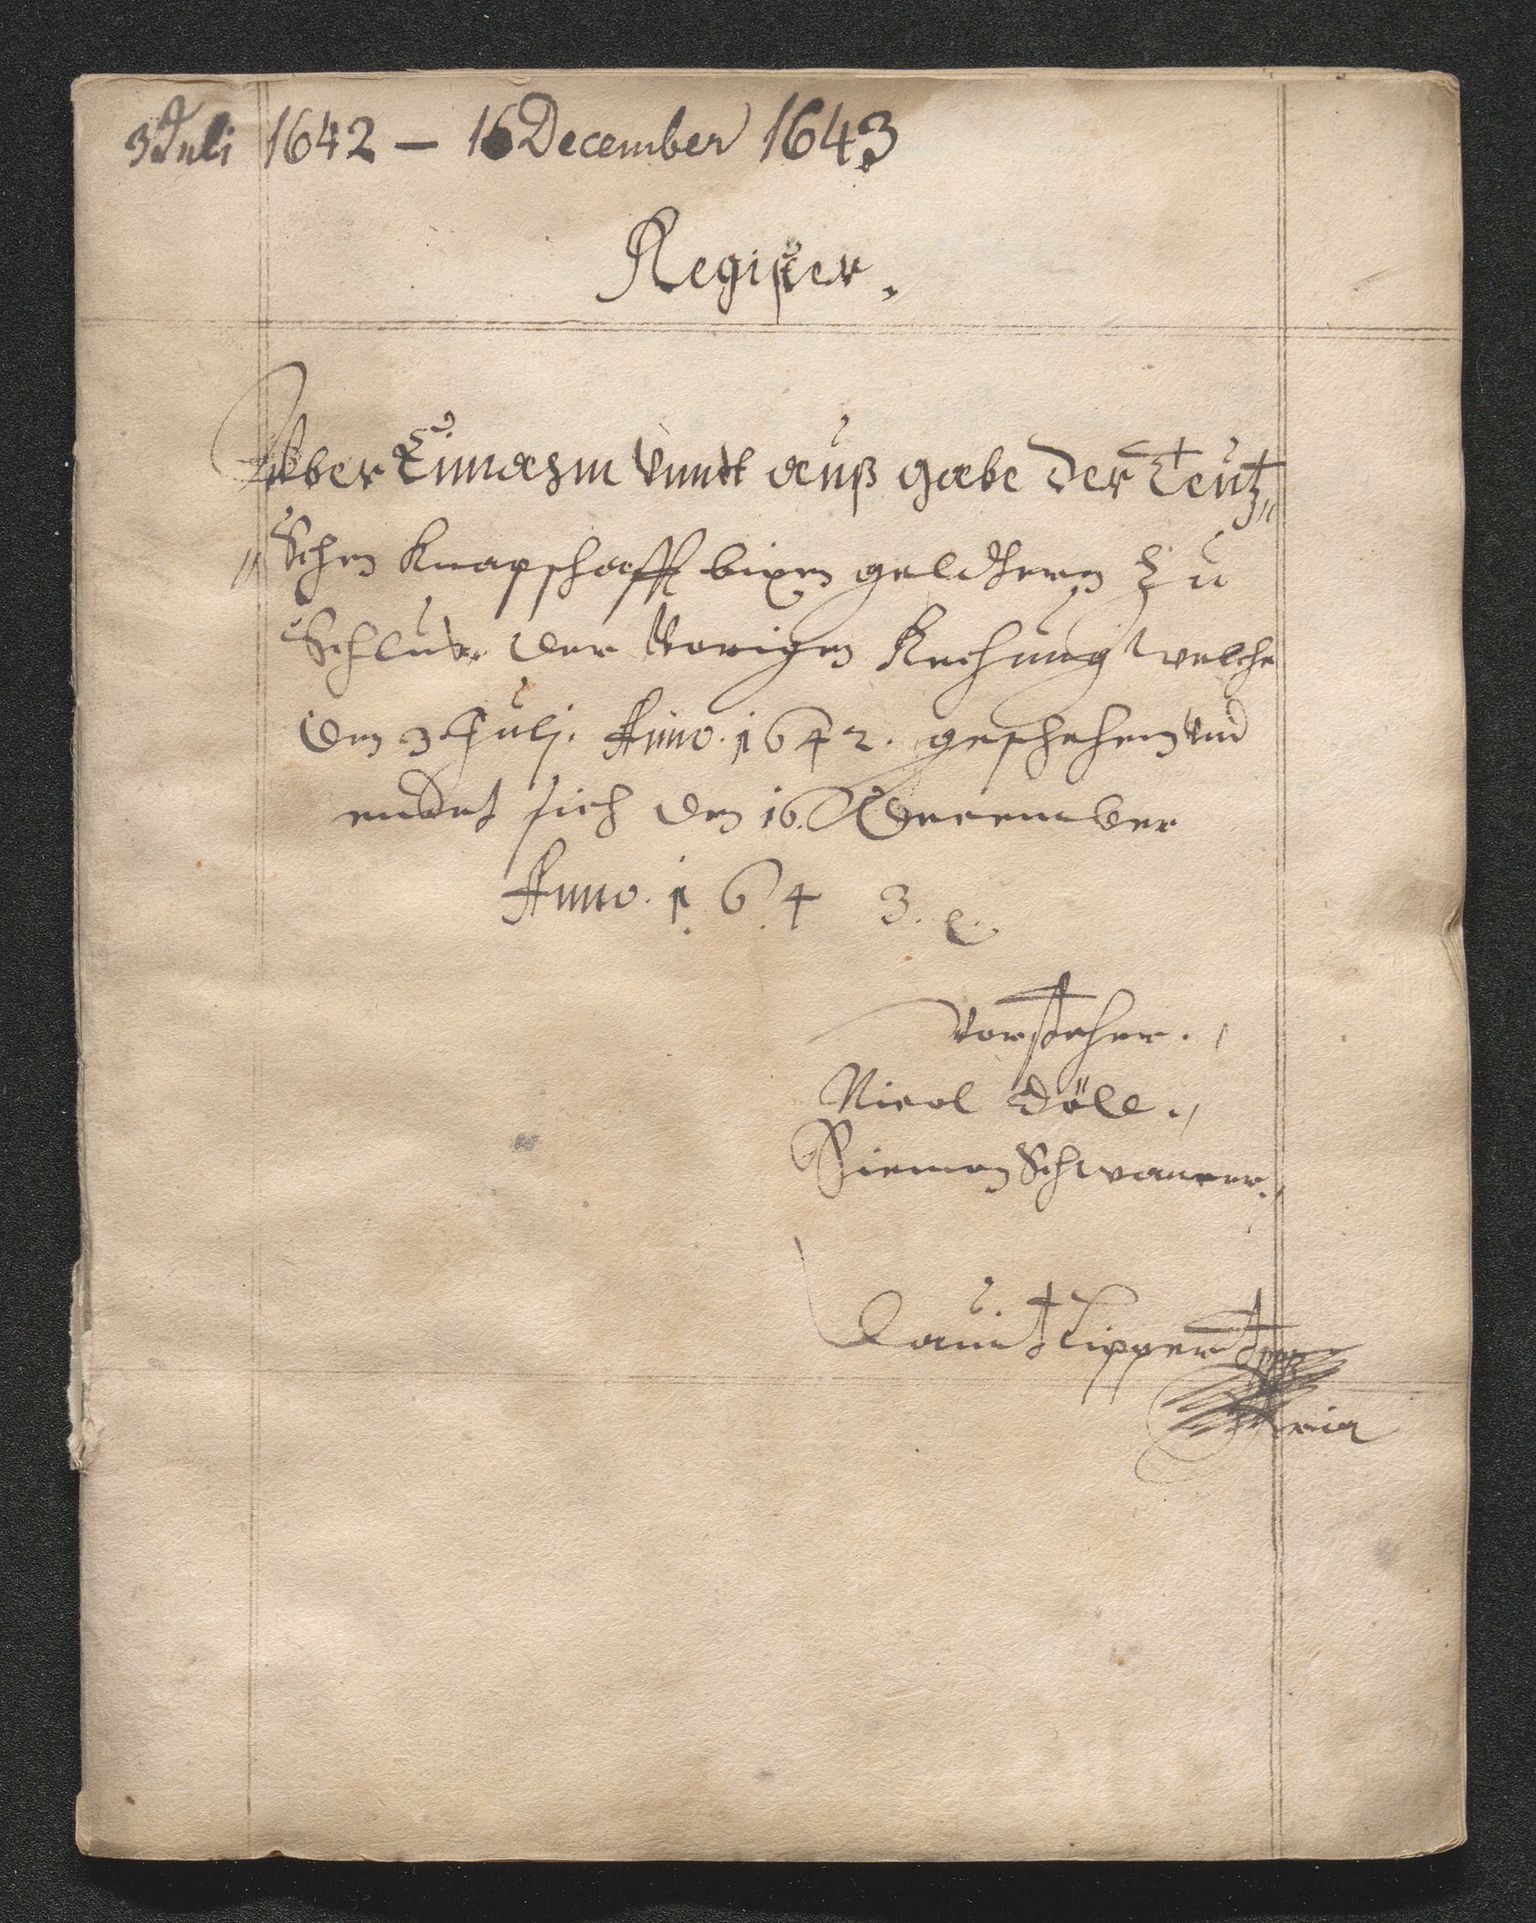 3 Juli 1642 — 16 December 1643
Register.
Vber Einnahm vnndt auß gabe der Teutz„
„Schen Knapschafft bixen geldtern zu
Schlus der Vorigen Rechnung welche
den 3 Julj. Anno. 1642. geschehen vnd
endet sich den 16. December
Anno. 1643.
Vorsteher.
Nicol Döll.
Siemon Schwaner.
Dauit Lippertt